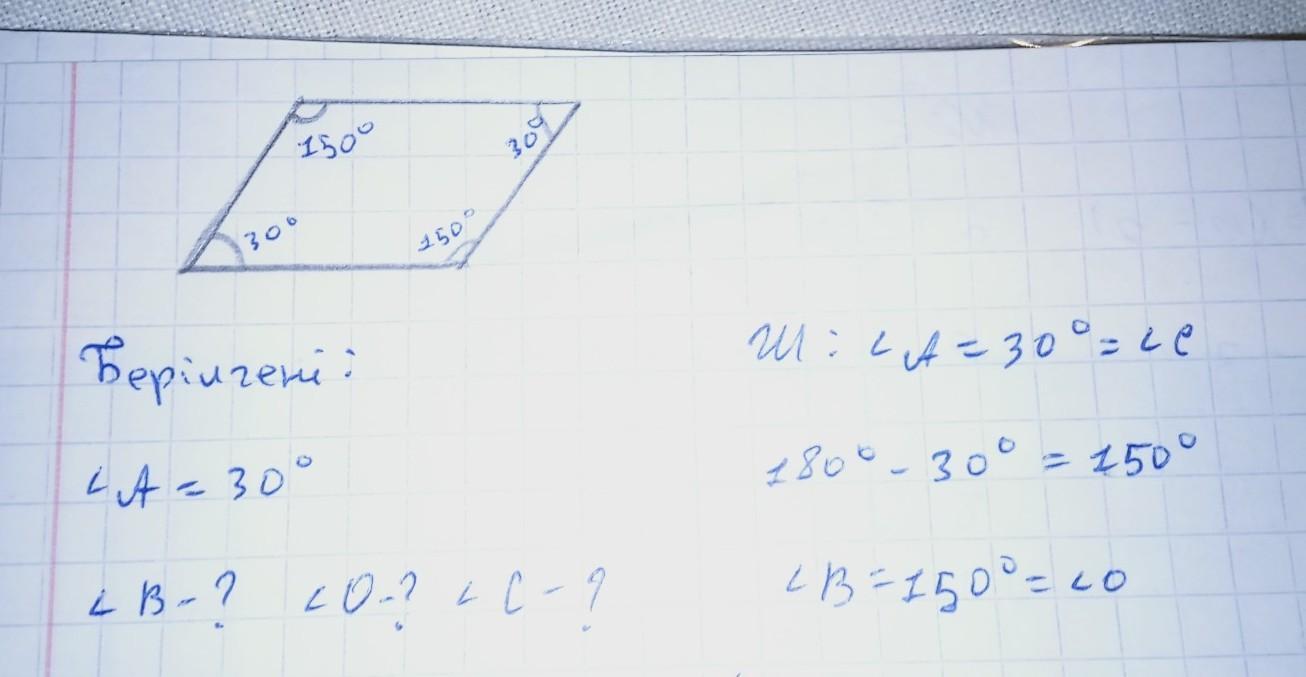 150° 30°
30° 150°
Берілгені:
∠A = 30°
∠B - ? ∠O - ? ∠C - ?
Ш: ∠A = 30° = ∠C
180° - 30° = 150°
∠B = 150° = ∠O